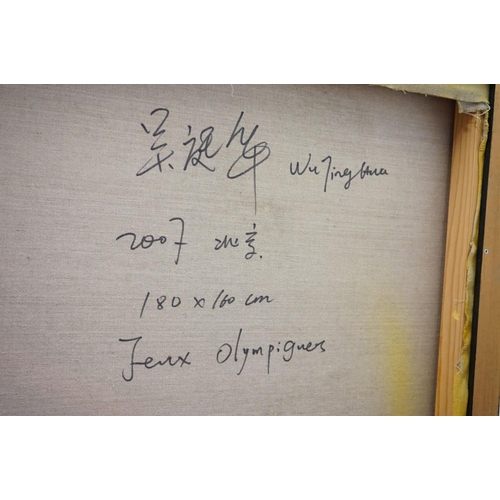 吴旎华 Wu Jing Hua
2007 北京
180 x 160 cm
Jeux Olympiques